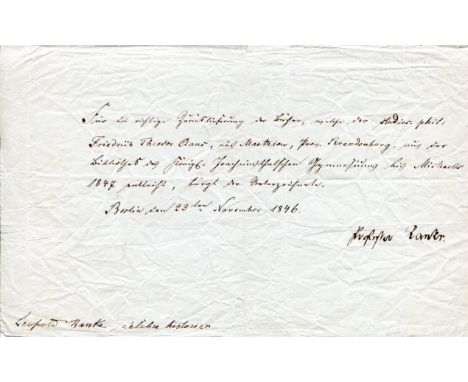 Für die richtige Zurücklieferung der Bücher, welche der studios. phil.
Friedrich Theodor aus Prov. Brandenburg, aus der
Bibliothek des Königl. Joachimsthalschen Gymnasiums bis Michaelis
1847 entleiht, bürgt der Unterzeichnete.
Berlin den 23ten November 1846.
Professor Ranke.
Leopold Ranke, célèbre historien